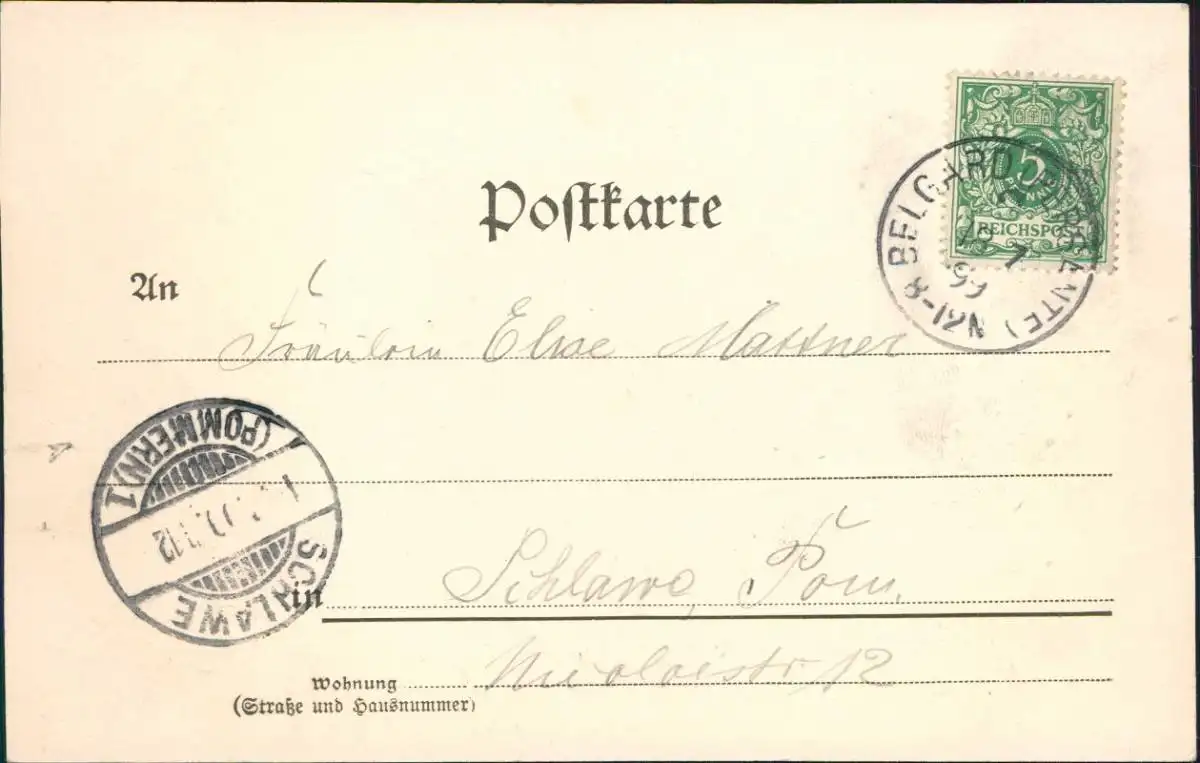 Postkarte
5
PFENNIG
REICHSPOST
BELGARD (PERSANTE)
7
99
8-12N
An
Fräulein Elise Mattner
(POMMERN) 1
SCHLAWE
in Schlawe, Pom.
Wohnung Nicolaistr. 12
(Straße und Hausnummer)